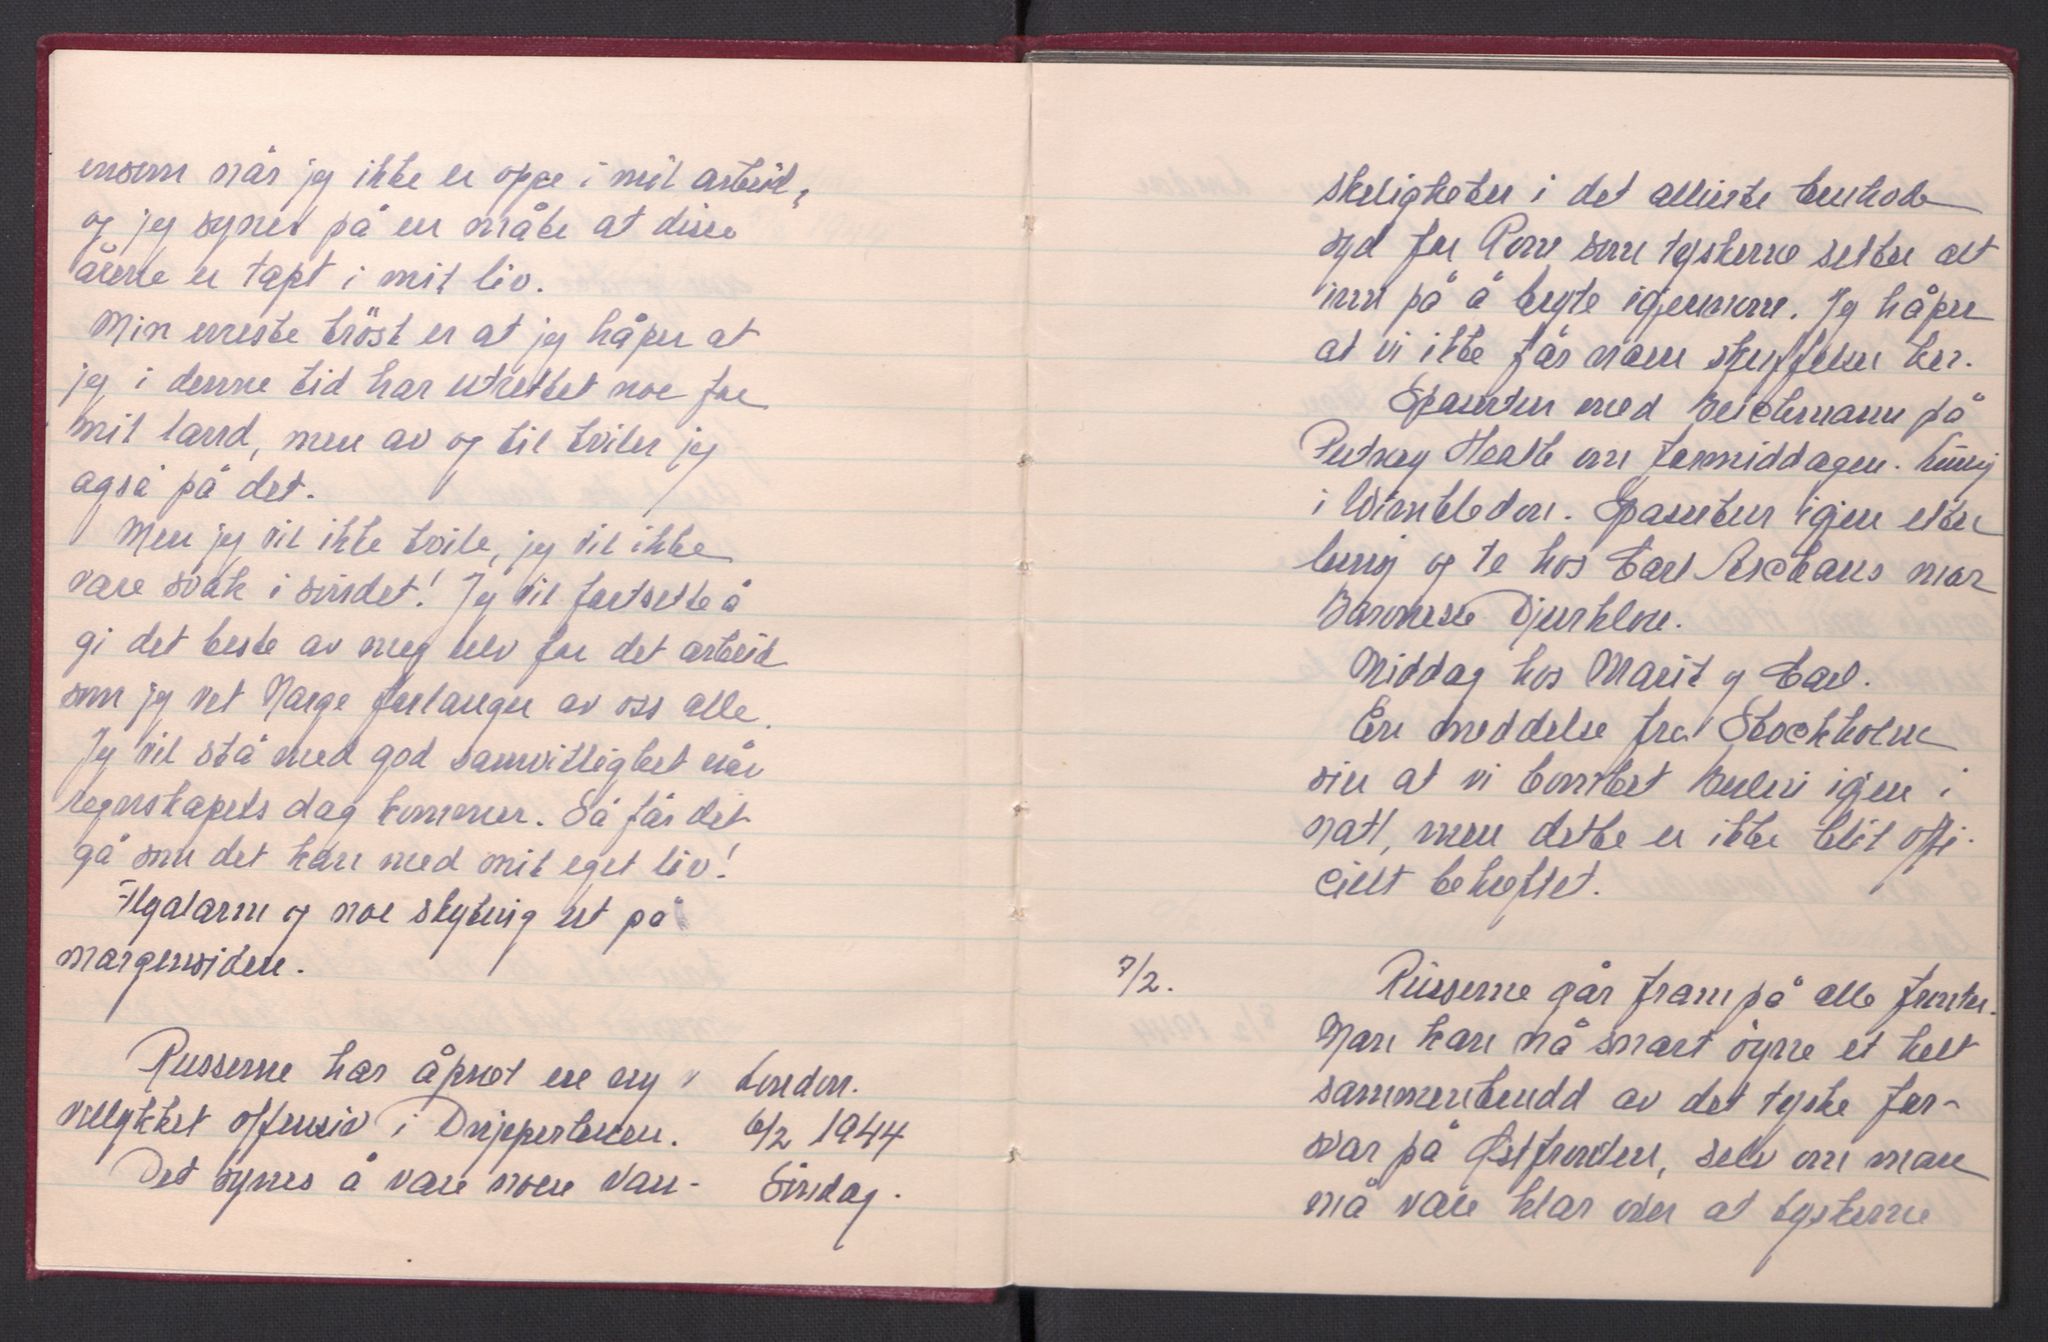 ensom når jeg ikke er oppe i mit arbeid,
og jeg synes på en måte at disse
årene er tapt i mit liv.
Min eneste tröst er at jeg håper at
jeg i denne tid har utrettet noe for
mit land, men av og til tviler jeg
også på det.
Men jeg vil ikke tvile, jeg vil ikke
være svak i sindet! Jeg vil fortsette å
gi det beste av meg selv for det arbeid
som jeg vet Norge forlanger av oss alle.
Jeg vil stå med god samvittighet når
regnskapets dag kommer. Så får det
gå som det kan med mit eget liv!
Flyalarm og noe skyting ut på
morgensiden.
London.
6/2 1944
Söndag.
Russerne har åpnet en ny
vellykket offensiv i Dnjepperbuen.
Det synes å være noen van-
skeligheter i det allierte bruhode
syd for Rom som tyskerne setter alt
inn på å bryte igjennom. Jeg håper
at vi ikke får noen skuffelse her.
Spasertur med Beichmann på
Putney Heath om formiddagen. Lunsj
i Wimbledon. Spasertur igjen etter
lunsj og te hos Carl
Baronesse Djurklou.
Middag hos Marit og Carl.
En meddelse fra Stockholm
sier at vi bombet Berlin igjen i
natt, men dette er ikke blit offi-
cielt bekreftet.
7/2.
Russerne går fram på alle fronter.
Man kan nå snart öyne et helt
sammenbrudd av det tyske for-
svar på Østfronten, selv om man
må være klar over at tyskerne